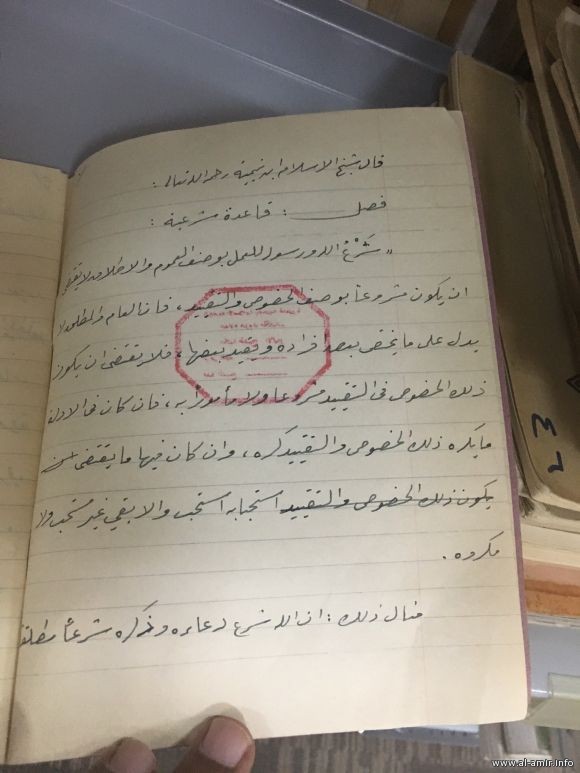 قال شيخ الاسلام ابن تيمية رحمه الله تعالى :
فصل : قاعدة شرعية :
" شَرْعُ الله ورسوله للعمل بوصف العموم والاطلاق لا يقتضي
ان يكون مشروعاً بوصف الخصوص والتقييد ، فان العام والمطلق لا
يدل على ما يختص بعض افراده ويقيد بعضها ، فلا يقتضى ان يكون
ذلك الخصوص فى التقييد مشروعا ولا مأموراً به ، فان كان فى الادلة
ما يكره ذلك الخصوص والتقييد كره ، وان كان فيها ما يقتضى
يكون ذلك الخصوص والتقييد استحبابه استحب والا بقي غير مستحب ولا
مكروه .
مثال ذلك : ان الله شرع دعاءه وذكره شرعاً مطلقا
L 3
www.al-amir.info